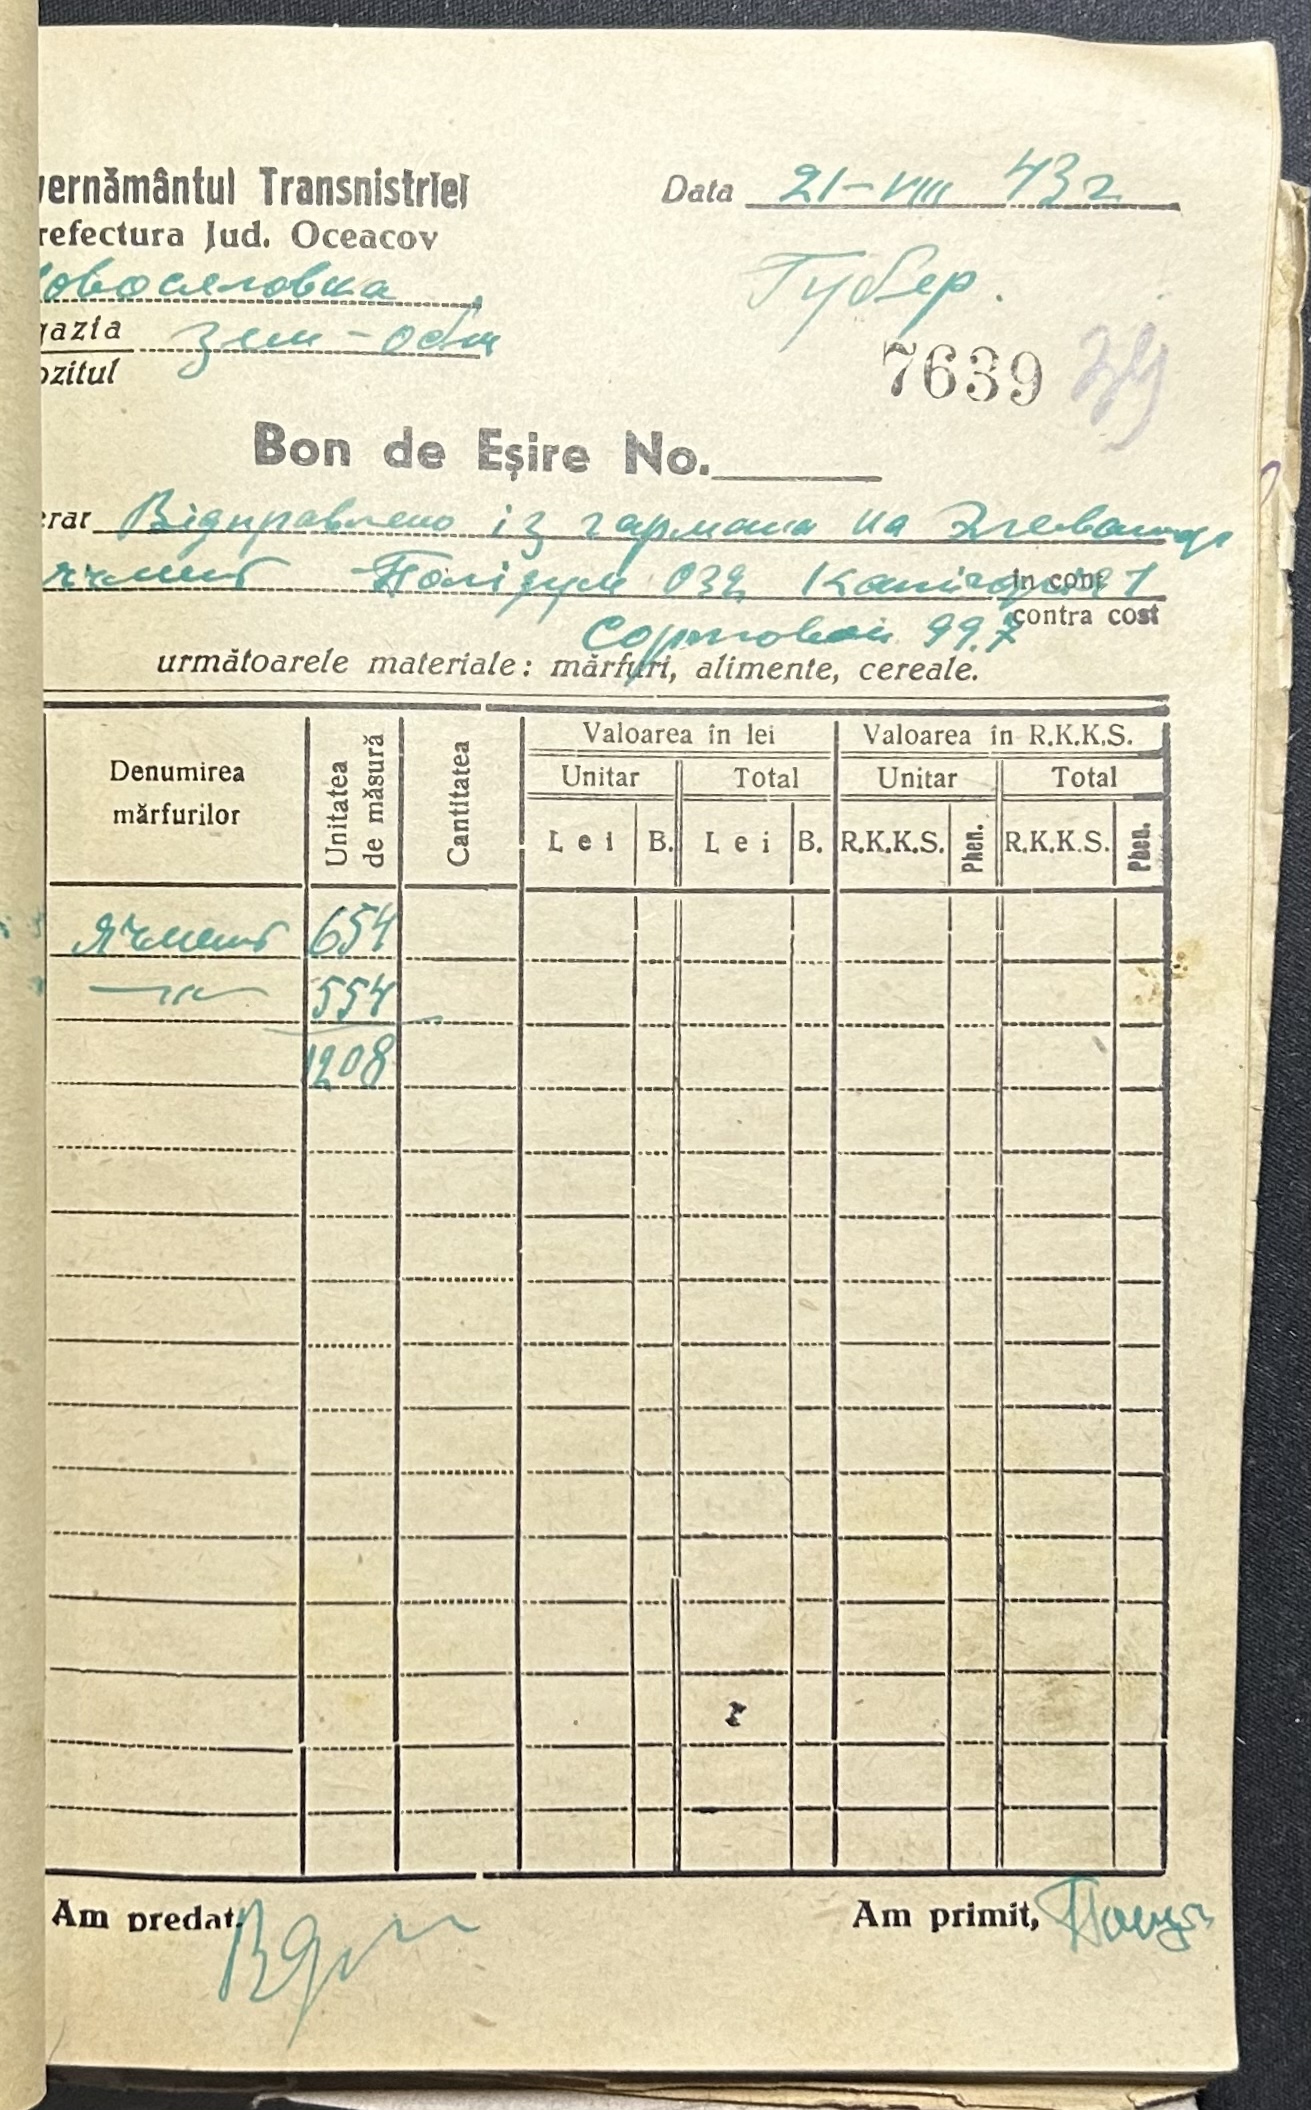 vernământul Transnistriei
Data 21-VIII 43 г
refectura Jud. Oceacov
овоселовка
Губер.
gazia зем-общ
ozitul
7639 39
Bon de Eșire No.
erar Відправлено із гармана на Элеватор
ячмень 032 in cont
contra cost
Сортовой 99.7
următoarele materiale: mărfuri, alimente, cereale.
Denumirea mărfurilor Unitatea de măsură Cantitatea Valoarea în lei Valoarea în R.K.K.S.
Unitar Total Unitar Total
Lei B. Lei B. R.K.K.S. Phen. R.K.K.S. Phen.
Ячмень 654
—"— 554
1208
Am predat,
Am primit,